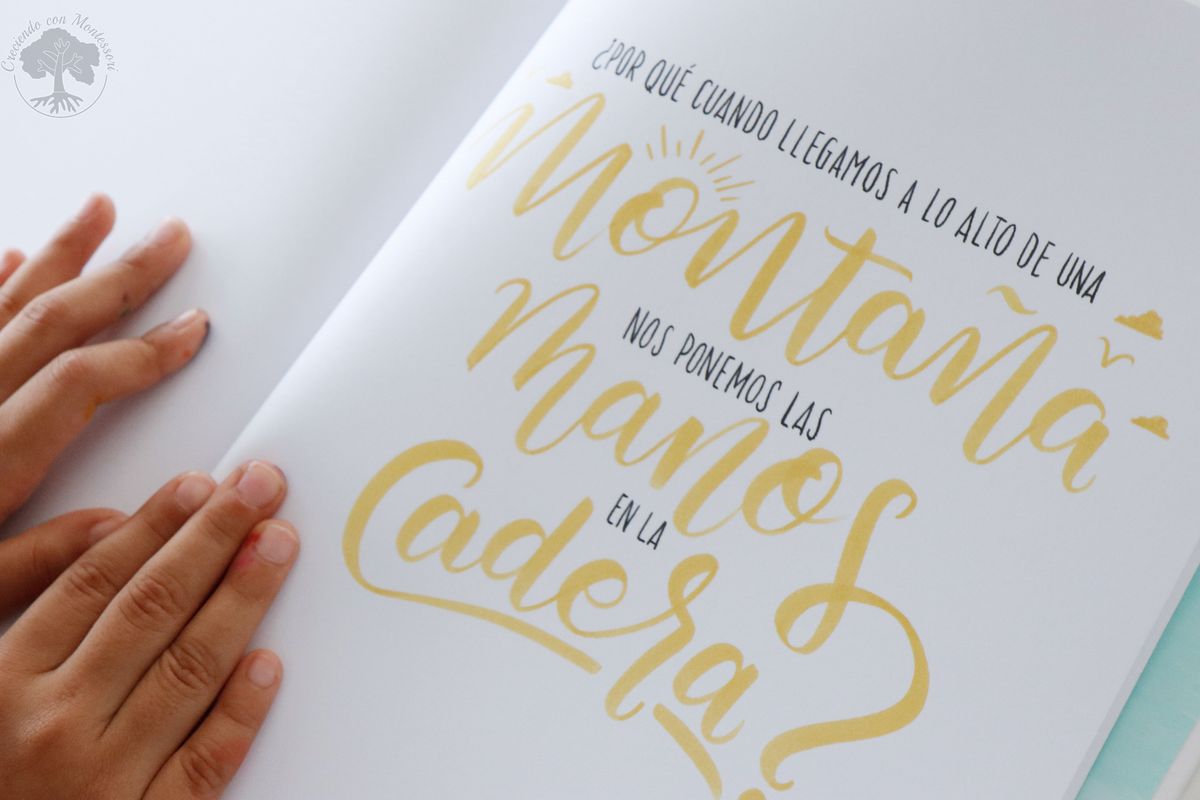 Creciendo con Montessori
¿POR QUÉ CUANDO LLEGAMOS A LO ALTO DE UNA
Montaña
NOS PONEMOS LAS
manos
EN LA
Cadera?